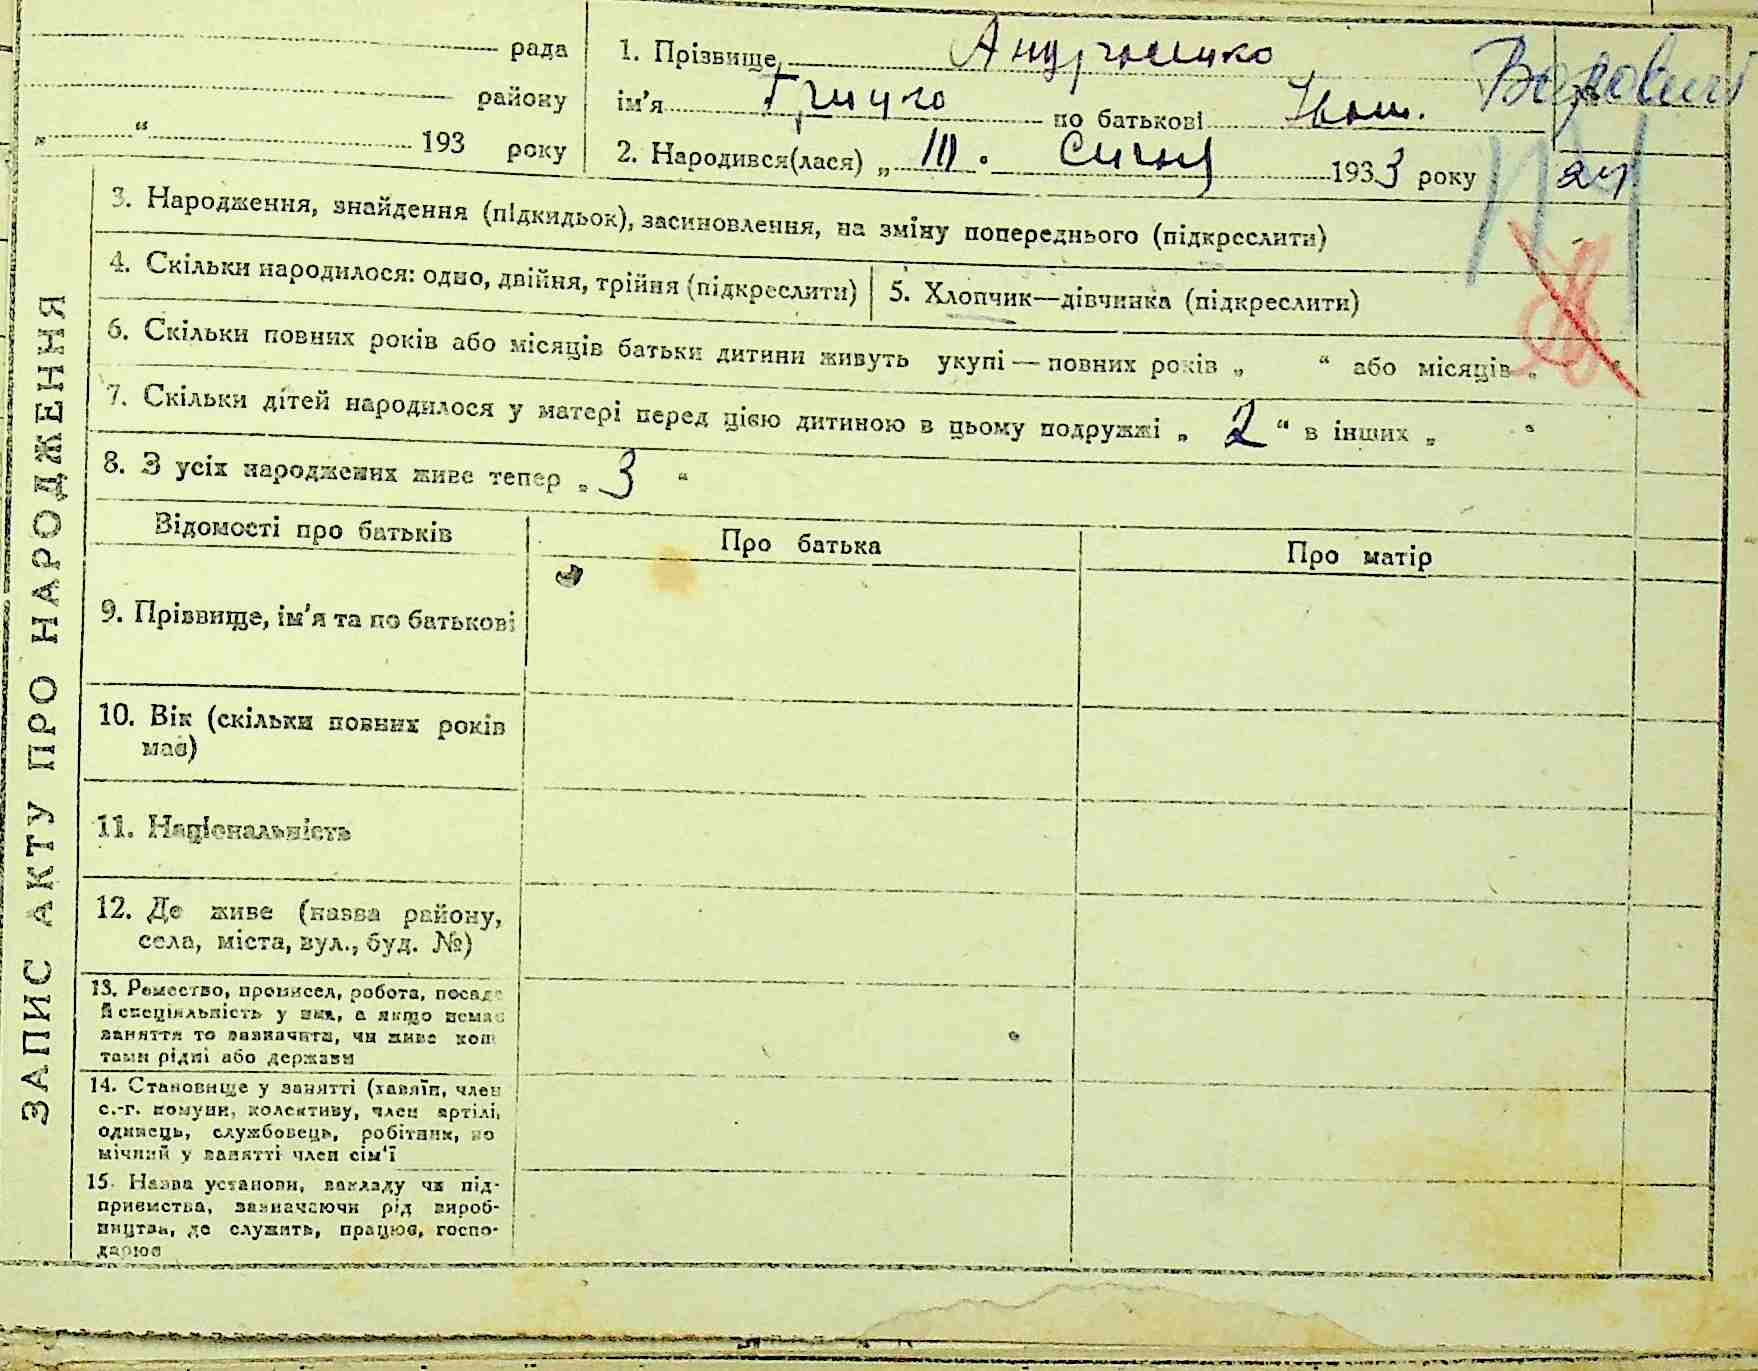 рада
району
„ “ 193 року
1. Прізвище
ім'я Грицько по батькові Іван.
2. Народився(лася) „ III. Січня 1933 року
3. Народження, знайдення (підкидьок), засиновлення, на зміну попереднього (підкреслити)
4. Скільки народилося: одно, двійня, трійня (підкреслити)
5. Хлопчик—дівчинка (підкреслити)
6. Скільки повних років або місяців батьки дитини живуть укупі — повних років „ “ або місяців „
7. Скільки дітей народилося у матері перед цією дитиною в цьому подружжі „ 2 “ в інших „ “
8. З усіх народжених живе тепер „ 3 “
ЗАПИС АКТУ ПРО НАРОДЖЕННЯ
Відомості про батьків
Про батька
Про матір
9. Прізвище, ім'я та по батькові
10. Вік (скільки повних років
має)
11. Національність
12. Де живе (назва району,
села, міста, вул., буд. №)
13. Ремество, промисел, робота, посада
й спеціяльність у них, а якщо немає
заняття то зазначити, чи живе кош
тами рідні або держави
14. Становище у занятті (хазяїн, член
с.-г. комуни, колективу, член артілі,
одинець, службовець, робітник, по
мічний у занятті член сім'ї
15. Назва установи, закладу чи під-
приємства, зазначаючи рід вироб-
ництва, де служить, працює, госпо-
дарює